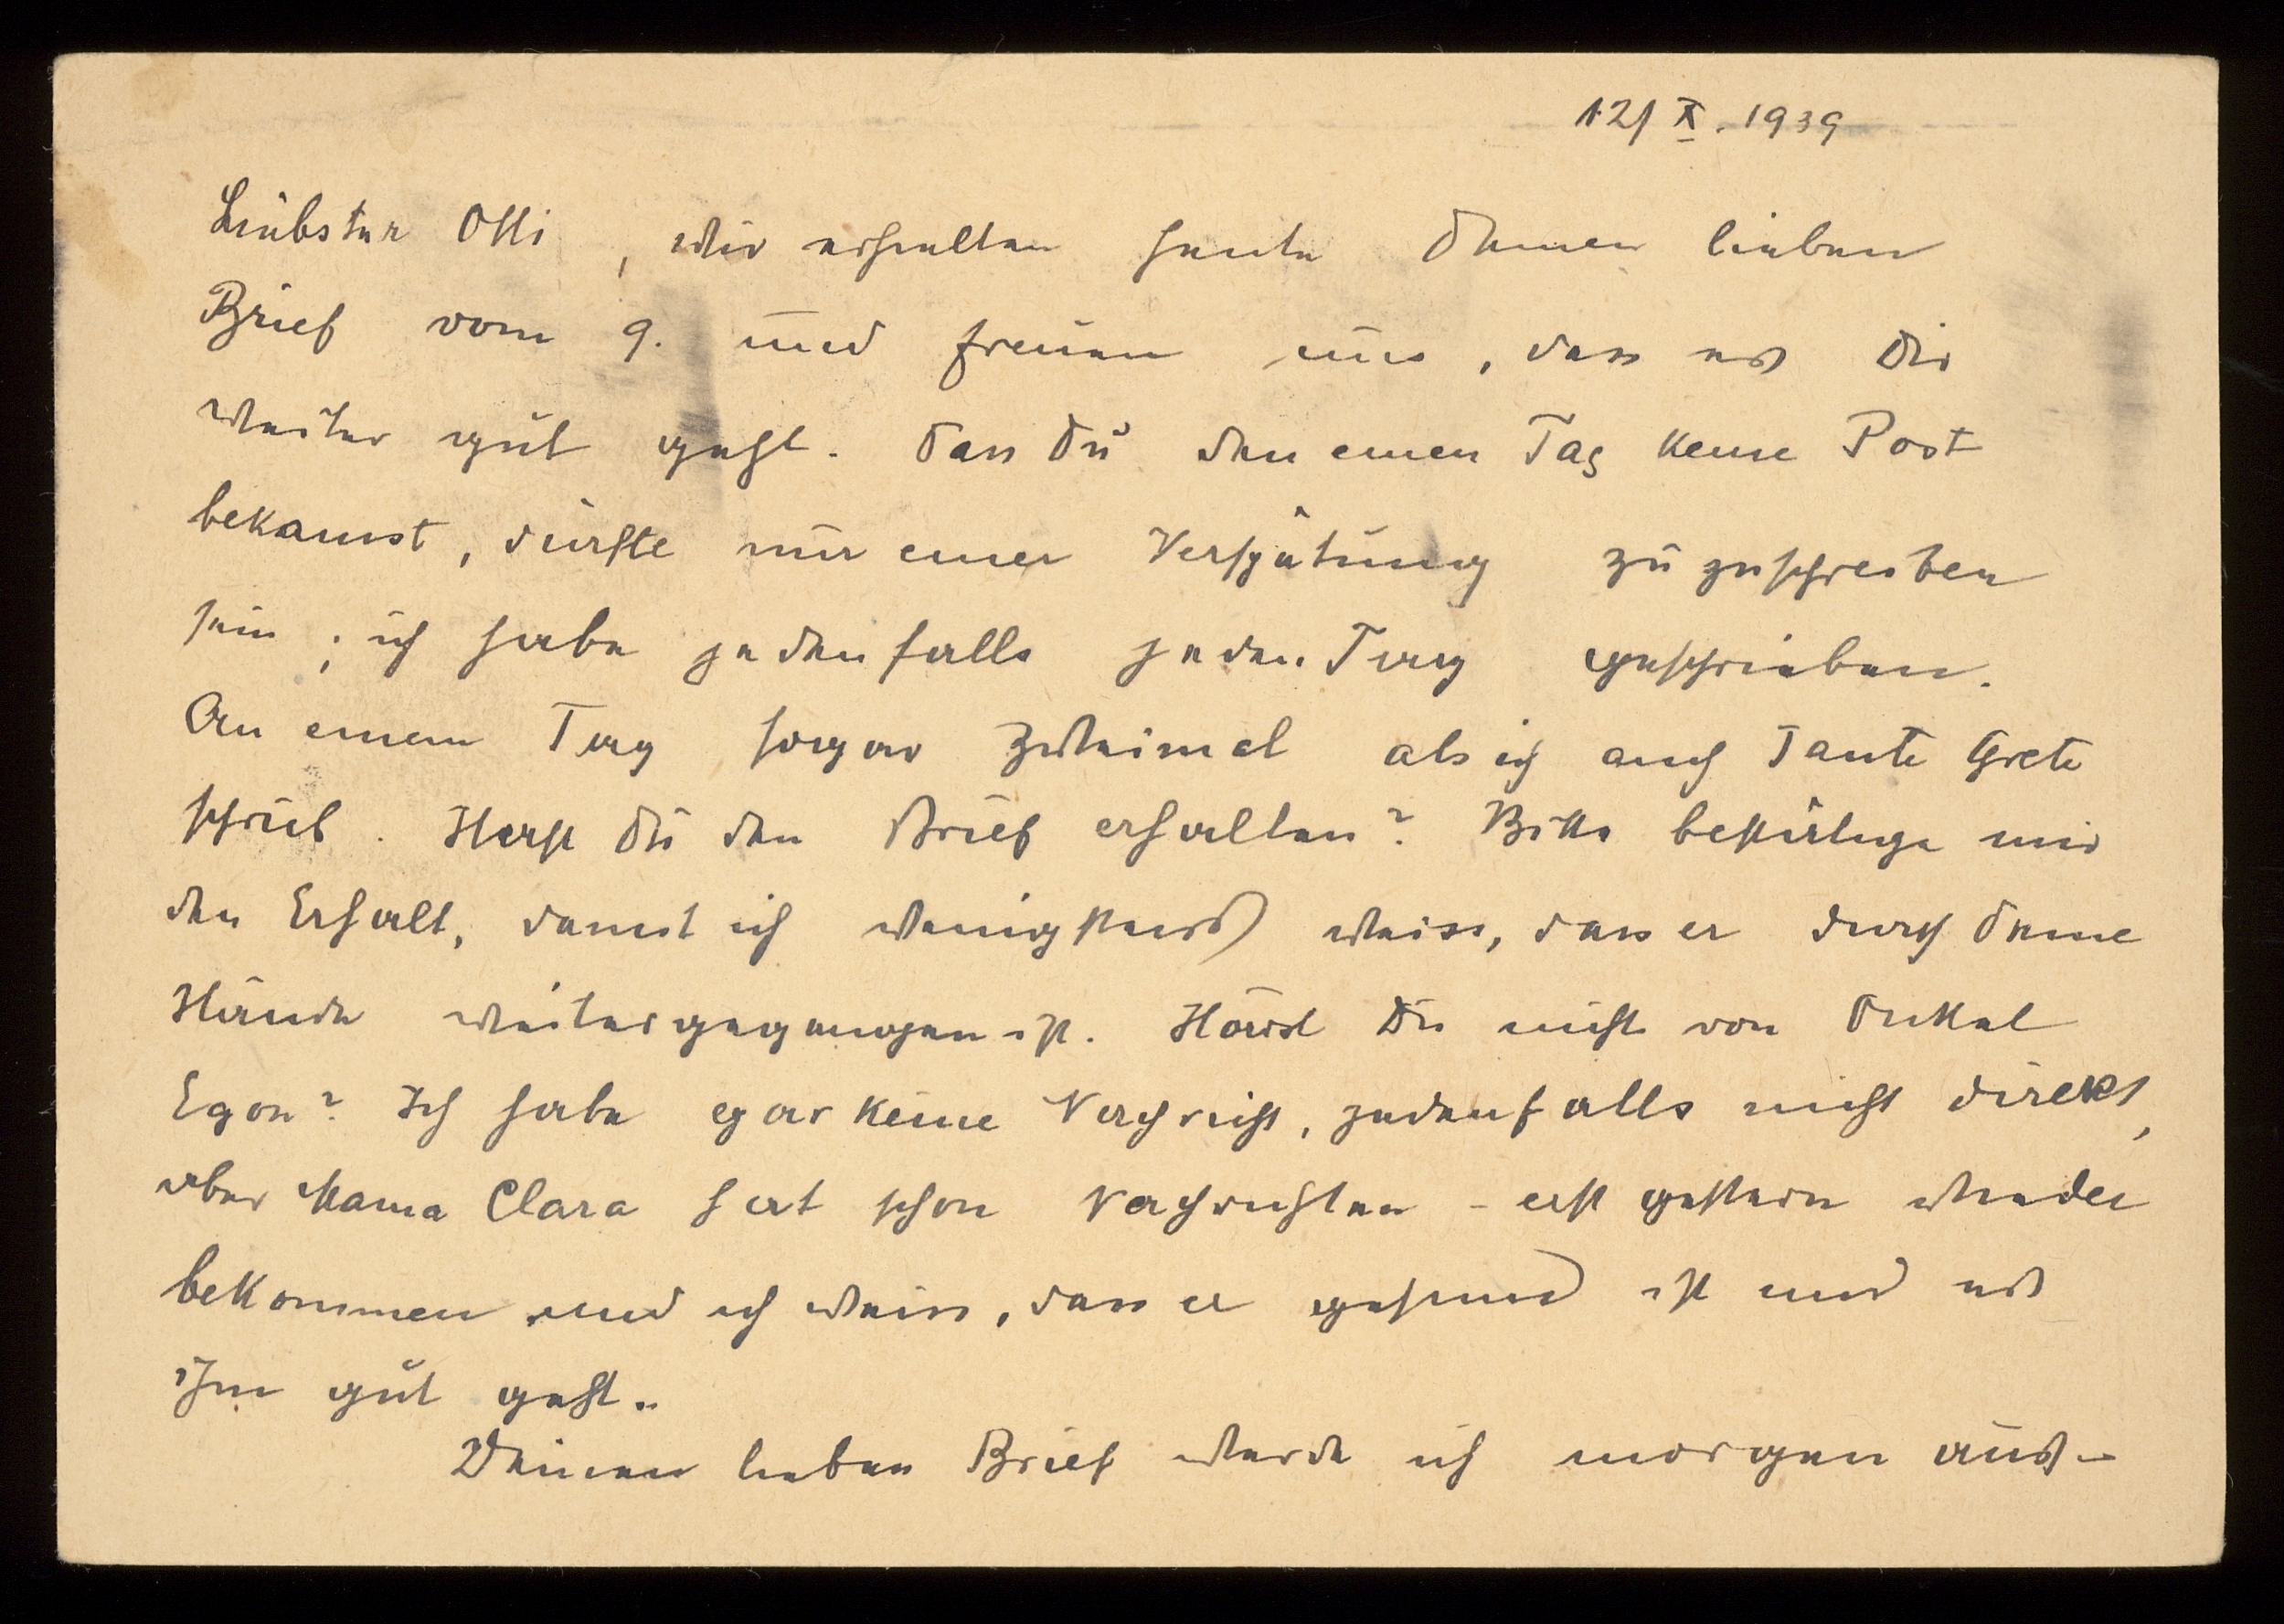 12/X. 1939
Liebster Otti, wir erhielten heute Deinen lieben
Brief vom 9. und freuen uns, dass es Dir
weiter gut geht. Dass Du den einen Tag keine Post
bekamst, dürfte nur einer Verspätung zuzuschreiben
sein; ich habe jedenfalls jeden Tag geschrieben.
An einem Tag sogar zweimal als ich auch Tante Grete
schrieb. Hast Du den Brief erhalten? Bitte bestätige mir
den Erhalt, damit ich wenigstens weiss, dass er durch Deine
Hände weitergegangen ist. Hörst Du nicht von Onkel
Egon? Ich habe gar keine Nachricht, jedenfalls nicht direkt,
aber Mama Clara hat schon Nachrichten - erst gestern wieder
bekommen und ich weiss, dass er gesund ist und es
ihm gut geht.
Deinen lieben Brief werde ich morgen aus-